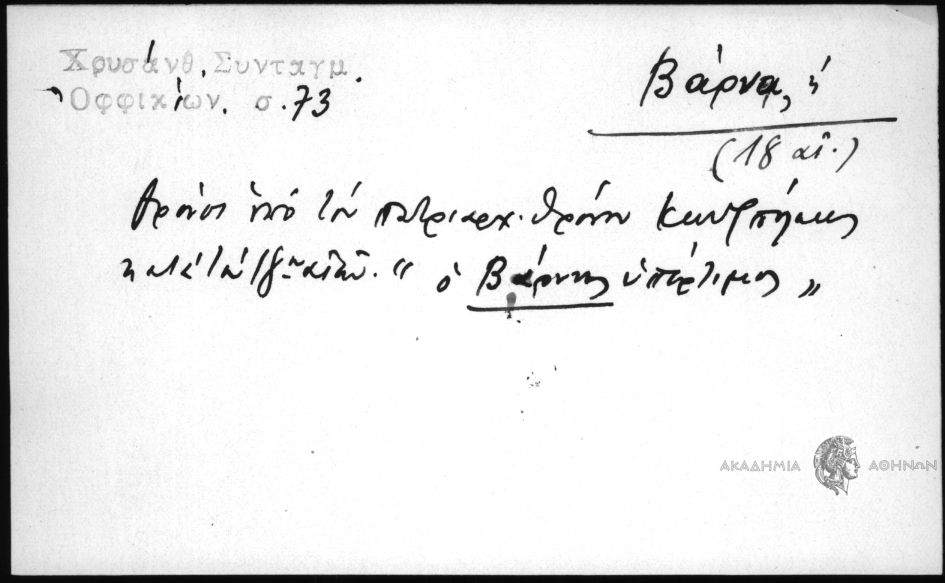 Χρυσάνθ. Συνταγμ.
Ὀφφικίων. σ. 73
Βάρνα, ἡ
(18 αἰ.)
θρόνος ὑπὸ τὸν πατριαρχ. θρόνον Κωνσ/πόλεως
κατὰ τὸν 18ον αἰῶν. “ ὁ Βάρνης ὑπέρτιμος „
ΑΚΑΔΗΜΙΑ ΑΘΗΝΩΝ